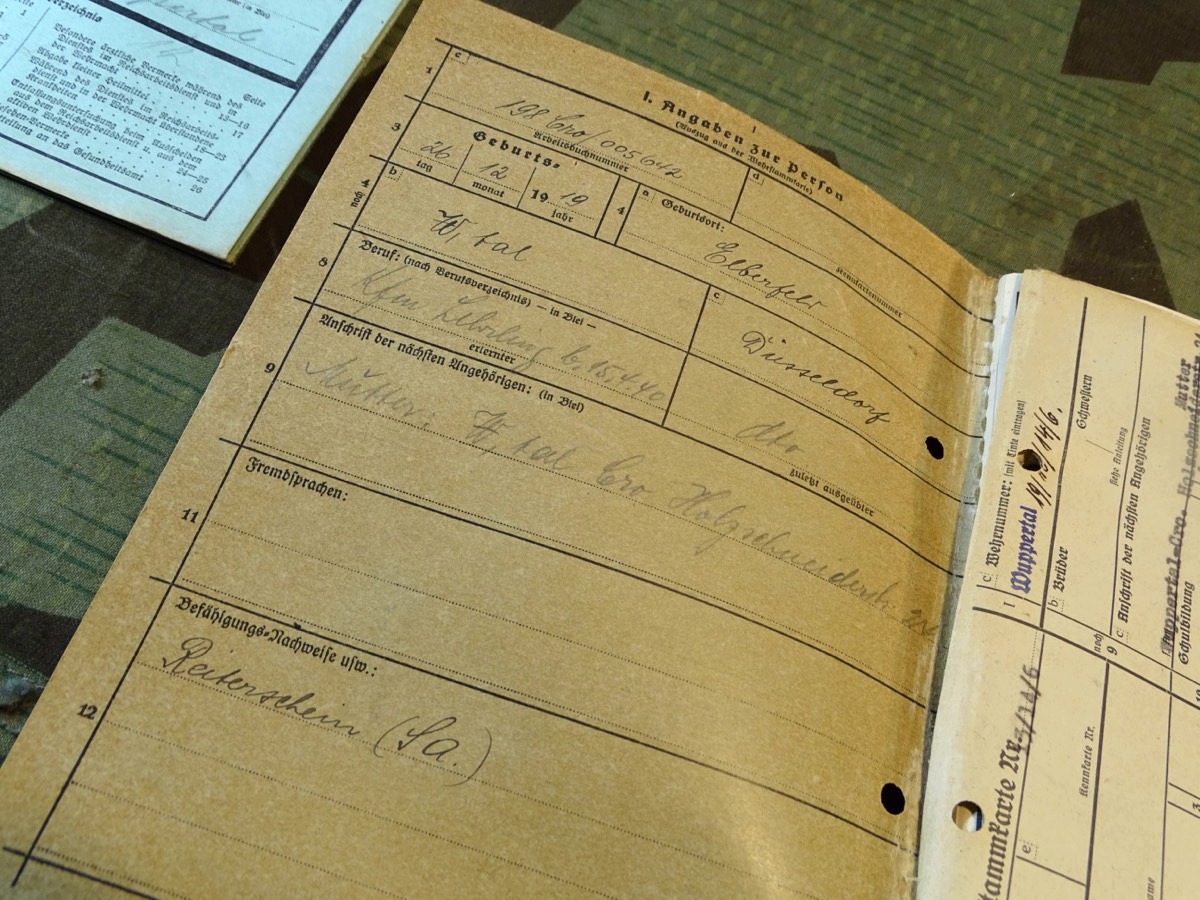 tal
verzeichnis
Besondere ärztliche Vermerke während des Seite
Dienstes im Reichsarbeitsdienst und in
der Wehrmacht 12–16
Abgabe kleiner Heilmittel
Während des Dienstes im Reichsarbeits-
dienst und in der Wehrmacht überstandene
Krankheiten 17
Entlassungsuntersuchung beim Ausscheiden
aus dem Reichsarbeitsdienst u. aus dem
aktiven Wehrdienst 18–23
Vermerke 24–25
an das Gesundheitsamt 26
1
I. Angaben zur Person
(Auszug aus der Wehrstammkarte)
1 c 198 Cro/005642
Arbeitsbuchnummer
d
Kennkartennummer
3 Geburts-
26 12 1919
tag monat jahr
4 a Geburtsort:
Elberfeld
noch 4 b W,tal
c Düsseldorf
8 Beruf: (nach Berufsverzeichnis) — in Blei —
Kfm Lehrling b. 15.4.40
erlernter
dto
zuletzt ausgeübter
9 Anschrift der nächsten Angehörigen: (in Blei)
Mutter: W,tal Cro Holzschneiderstr.
11 Fremdsprachen:
12 Befähigungs-Nachweise usw.:
Reiterschein (Sa.)
1 c Wehrnummer: (mit Tinte eintragen)
Wuppertal 19/20/14/6.
b Brüder
Schwestern
noch 9
siehe Anleitung
c Anschrift der nächsten Angehörigen
Mutter
Wuppertal-Cro.
Schulbildung
stammkarte Nr.
e
Kennkarte Nr.
3